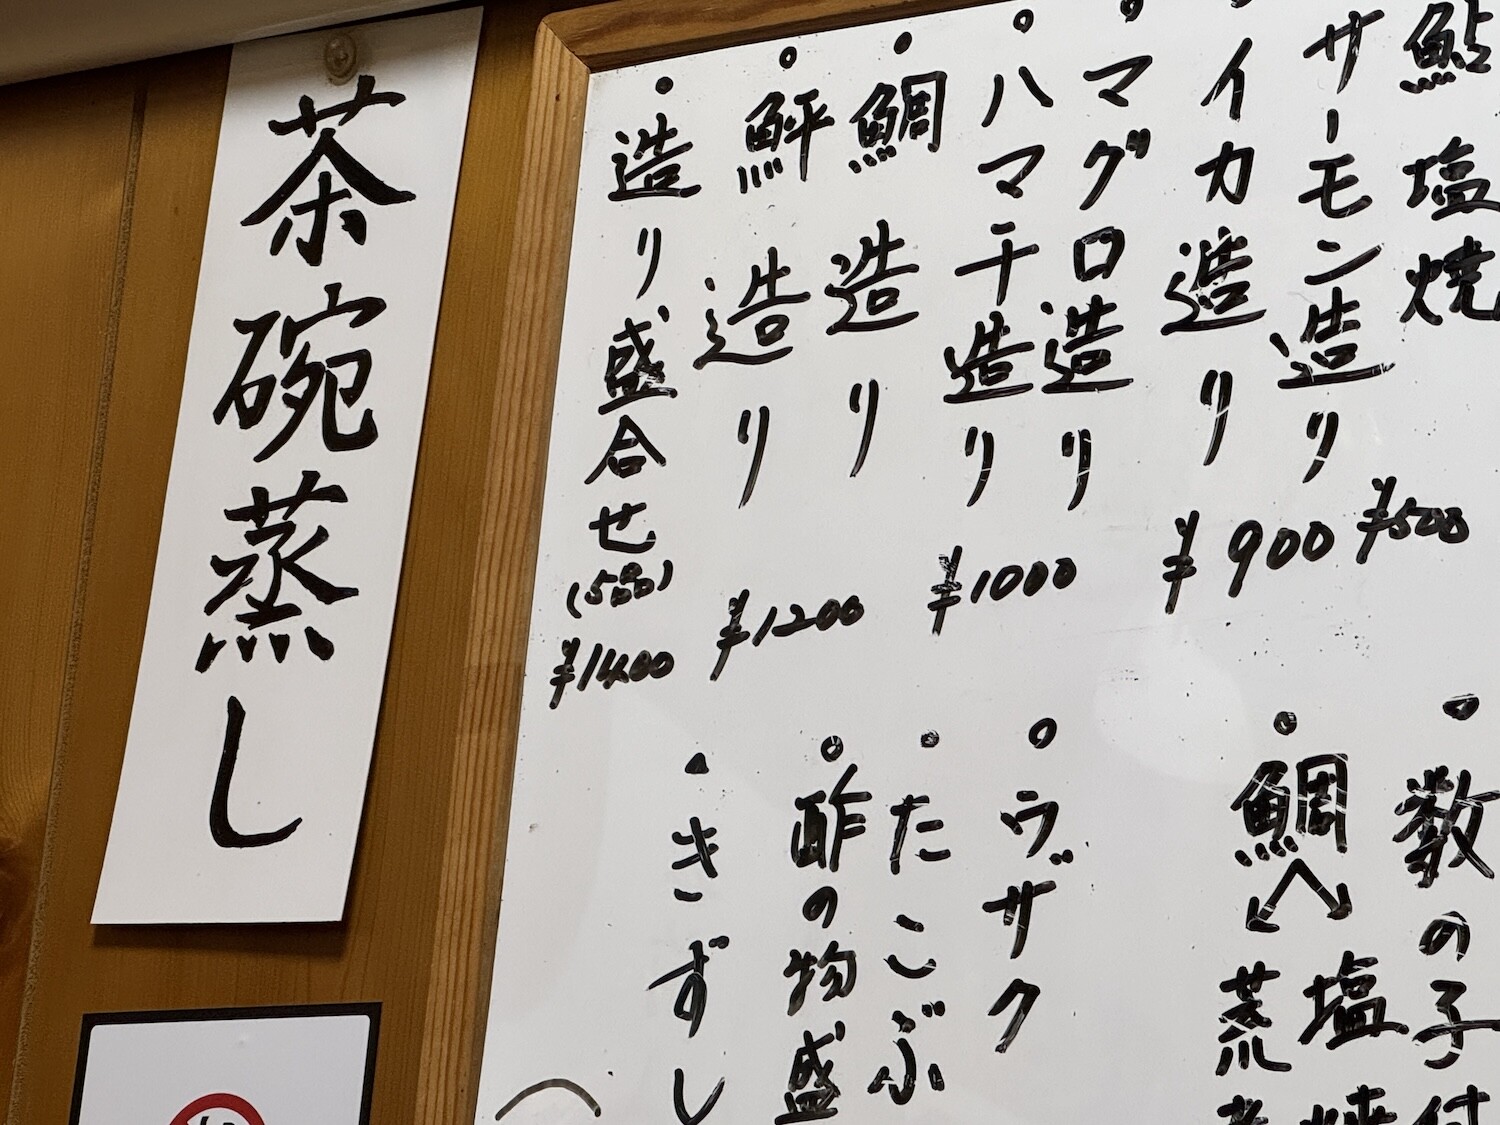 茶碗蒸し
鮎塩焼
サーモン造り
¥500
イカ造り
¥900
マグロ造り
ハマチ造り
¥1000
鯛造り
鮃造り
¥1200
造り盛合せ
¥1400
数の子
鯛
塩
荒
ウザク
たこぶ
酢の物盛
きずし